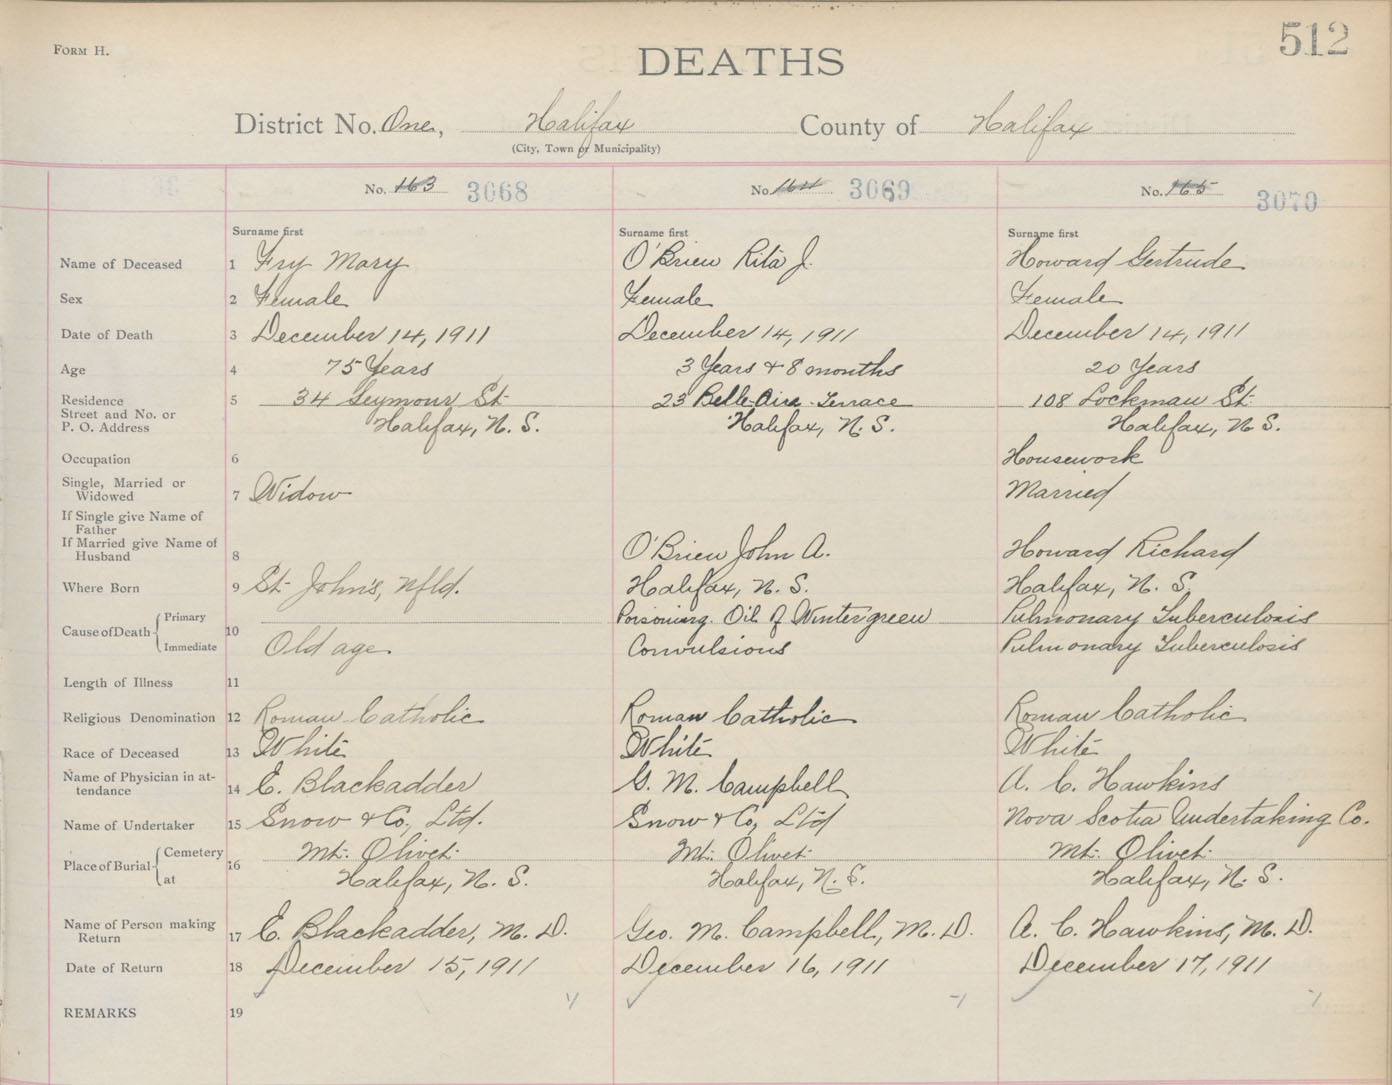 FORM H.
512
DEATHS
District No. One, Halifax County of Halifax
(City, Town or Municipality)
No. 163 3068 No. 164 3069 No. 165 3070
Surname first Surname first Surname first
Name of Deceased 1 Fry Mary O'Brien Rita J. Howard Gertrude
Sex 2 Female Female Female
Date of Death 3 December 14, 1911 December 14, 1911 December 14, 1911
Age 4 75 Years 3 Years & 8 months 20 Years
Residence 5 34 Seymour St. 23 Belle-Aire-Terrace 108 Lockman St.
Street and No. or
P. O. Address Halifax, N. S. Halifax, N. S. Halifax, N. S.
Occupation 6 Housework
Single, Married or
Widowed 7 Widow Married
If Single give Name of
Father
If Married give Name of
Husband 8 O'Brien John A. Howard Richard
Where Born 9 St. John's, Nfld. Halifax, N. S. Halifax, N. S.
Cause of Death 10 Primary Poisoning. Oil of Wintergreen Pulmonary Tuberculosis
Immediate Old age Convulsions Pulmonary Tuberculosis
Length of Illness 11
Religious Denomination 12 Roman Catholic Roman Catholic Roman Catholic
Race of Deceased 13 White White White
Name of Physician in at-
tendance 14 E. Blackadder G. M. Campbell A. C. Hawkins
Name of Undertaker 15 Snow & Co, Ltd. Snow & Co, Ltd Nova Scotia Undertaking Co.
Place of Burial 16 Cemetery Mt. Olivet Mt. Olivet Mt. Olivet
at Halifax, N. S. Halifax, N. S. Halifax, N. S.
Name of Person making
Return 17 E. Blackadder, M. D. Geo. M. Campbell, M. D. A. C. Hawkins, M. D.
Date of Return 18 December 15, 1911 December 16, 1911 December 17, 1911
REMARKS 19